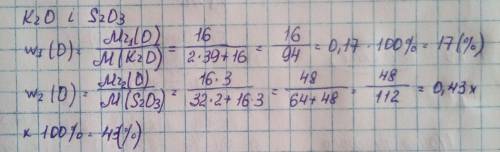 K₂O і S₂O₃
w₁(O) = Mr₁(O) / M(K₂O) = 16 / 2·39+16 = 16 / 94 = 0,17 · 100% = 17(%)
w₂(O) = Mr₂(O) / M(S₂O₃) = 16·3 / 32·2+16·3 = 48 / 64+48 = 48 / 112 = 0,43 x
x 100% = 43(%)